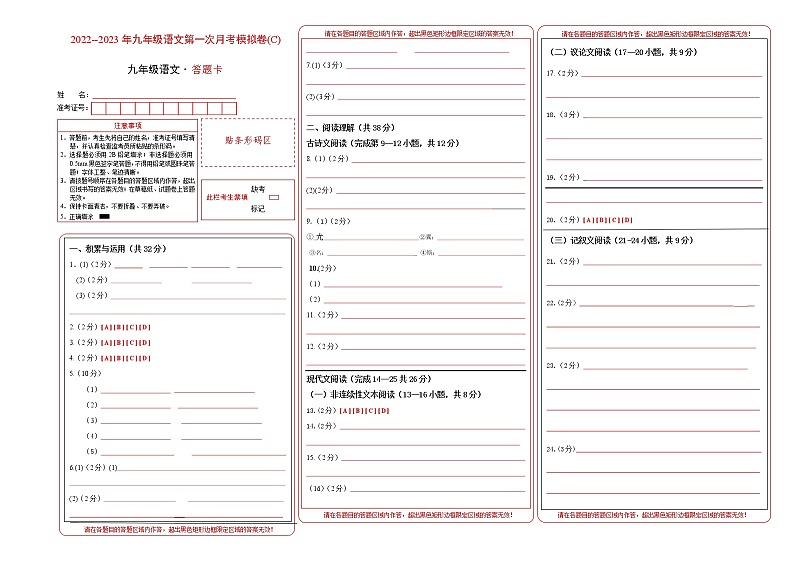 2022--2023 年九年级语文第一次月考模拟卷(C)
九年级语文 · 答题卡
姓 名:
准考证号:
注意事项
1、答题前,考生先将自己的姓名,准考证号填写清
楚,并认真检查监考员所粘贴的条形码。
2、选择题必须用 2B 铅笔填涂;非选择题必须用
0.5mm 黑色签字笔答题,不得用铅笔或圆珠笔答
题;字体工整、笔迹清晰。
3、请按题号顺序在各题目的答题区域内作答,超出
区域书写的答案无效;在草稿纸、试题卷上答题
无效。
4、保持卡面清洁,不要折叠、不要弄破。
5、正确填涂
贴条形码区
此栏考生禁填
缺考
标记
一、积累与运用(共 32 分)
1、(1) (2 分)
(2) (2 分)
(3) (2 分)
2.(2 分) [A] [B] [C] [D]
3.(2 分) [A] [B] [C] [D]
4.(2 分) [A] [B] [C] [D]
5.(10 分)
(1)
(2)
(3)
(4)
(5)
6.(1) (2 分) (1)
(2) (2 分)
请在各题目的答题区域内作答,超出黑色矩形边框限定区域的答案无效!
请在各题目的答题区域内作答,超出黑色矩形边框限定区域的答案无效!
7.(1) (3 分)
(2) (3 分)
二、阅读理解(共 38 分)
古诗文阅读(完成第 9—12 小题,共 12 分)
8.(1) (2 分)
(2)(2 分)
9.(1)(2 分)
① 尤
②寓:
③名:
④顾:
10.(2 分)
(1)
(2)
11.(2 分)
12.(2 分)
现代文阅读(完成 14—25 共 26 分)
(一)非连续性文本阅读(13—16 小题,共 8 分)
13.(2 分) [A] [B] [C] [D]
14.(2 分)
15.(2 分)
(16)(2 分)
请在各题目的答题区域内作答,超出黑色矩形边框限定区域的答案无效!
请在各题目的答题区域内作答,超出黑色矩形边框限定区域的答案无效!
(二)议论文阅读(17—20 小题,共 9 分)
17.(2 分)
18.(3 分)
19.(2 分)
20.(2 分) [A] [B] [C] [D]
(三)记叙文阅读(21-24 小题,共 9 分)
21.(2 分)
22.(2 分)
23.(2 分)
24.(3 分)
请在各题目的答题区域内作答,超出黑色矩形边框限定区域的答案无效!